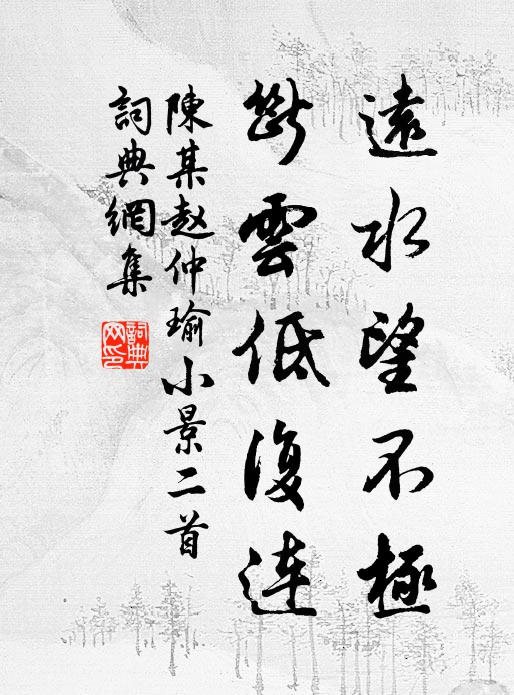 遠水望不極
斷雲低復連
陳某赵仲瑜小景二首
詞典網集
詞典
网印